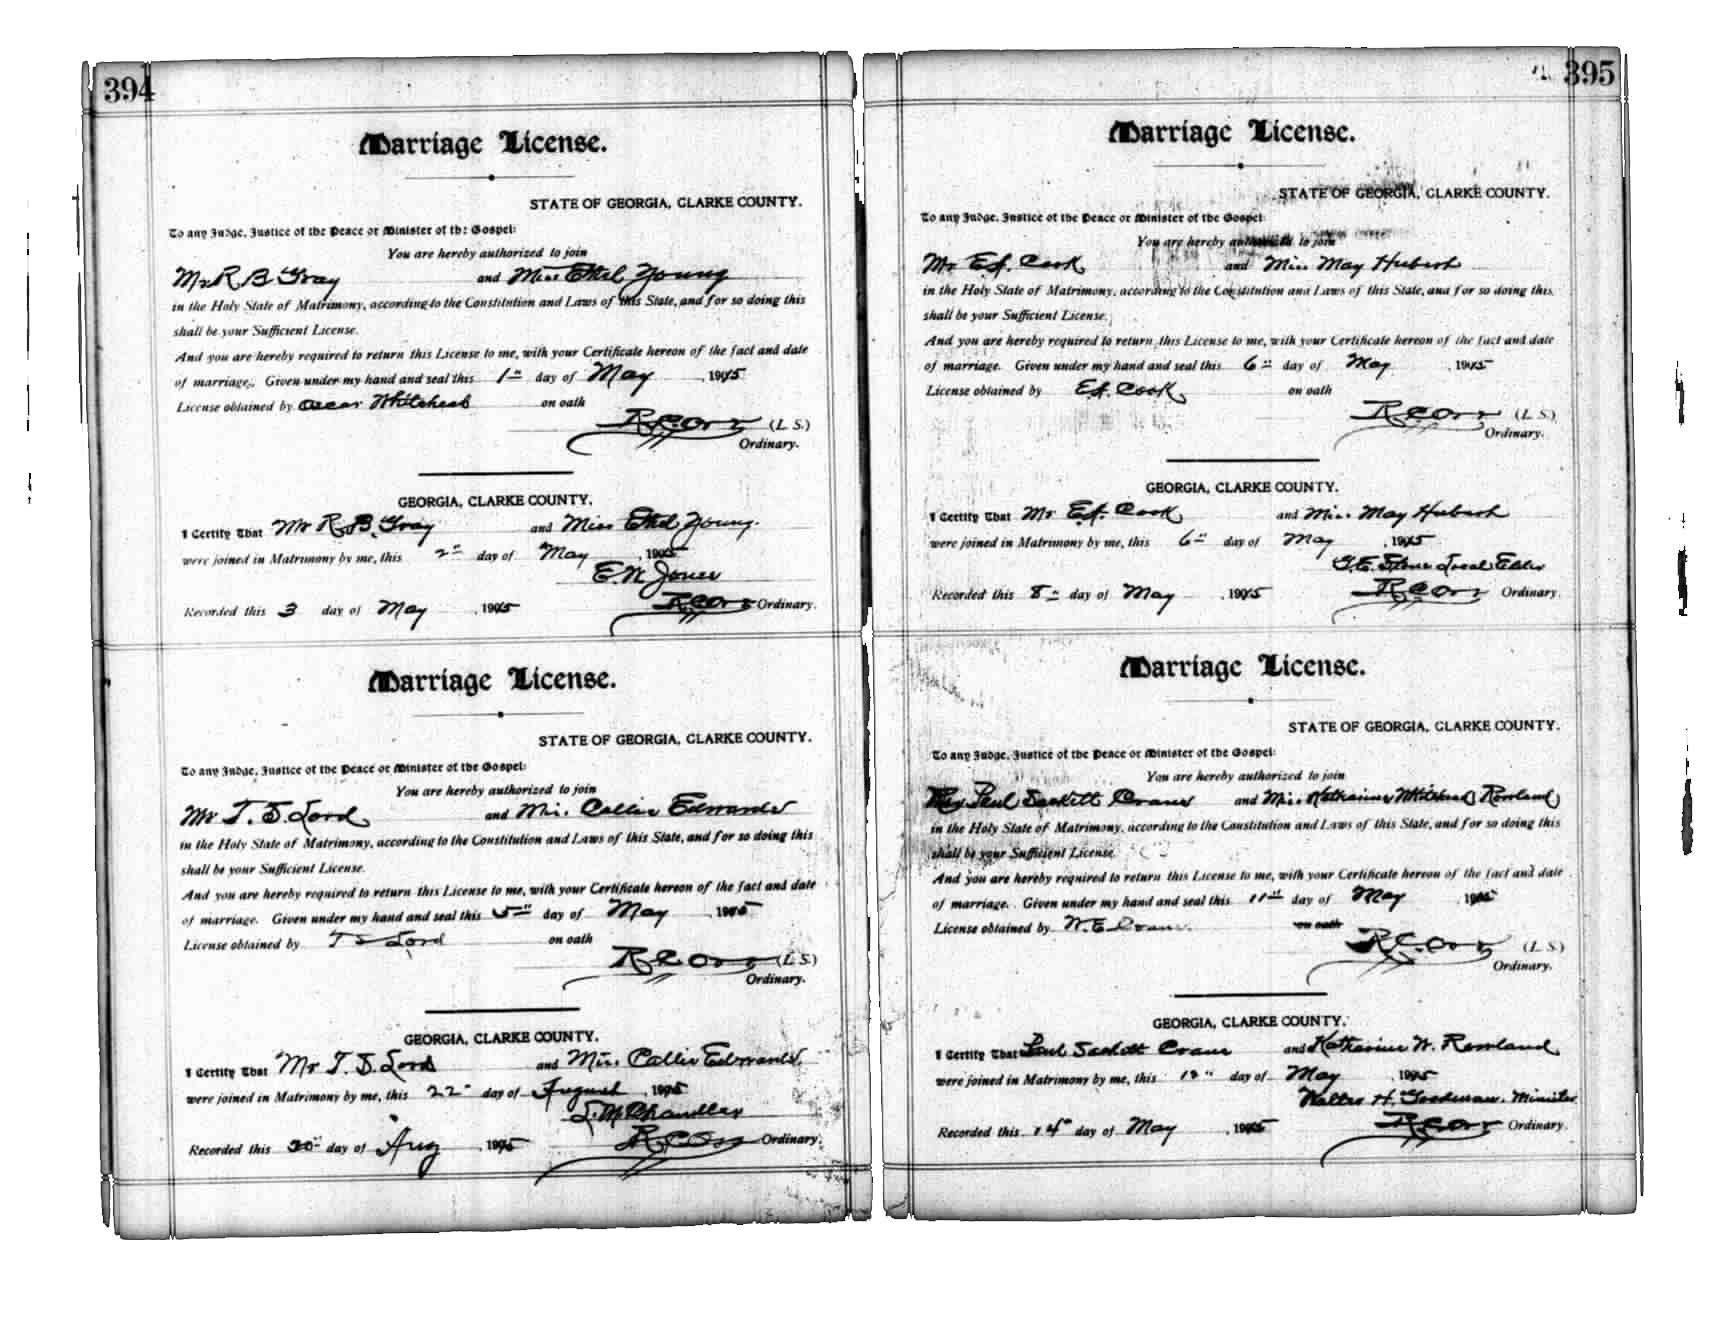 394
Marriage License.
STATE OF GEORGIA, CLARKE COUNTY.
To any Judge, Justice of the Peace or Minister of the Gospel:
You are hereby authorized to join
Mr R B Gray and Miss Ethel Young
in the Holy State of Matrimony, according to the Constitution and Laws of this State, and for so doing this
shall be your Sufficient License.
And you are hereby required to return this License to me, with your Certificate hereon of the fact and date
of marriage. Given under my hand and seal this 1st day of May, 1905
License obtained by Oscar Whitehead on oath
R C Orr (L. S.)
Ordinary.
GEORGIA, CLARKE COUNTY.
I Certify That Mr R. B. Gray and Miss Ethel Young.
were joined in Matrimony by me, this 2" day of May, 1905
E. N. Jones
Recorded this 3 day of May, 1905 R C Orr Ordinary.
Marriage License.
STATE OF GEORGIA, CLARKE COUNTY.
To any Judge, Justice of the Peace or Minister of the Gospel:
You are hereby authorized to join
Mr T. S. Lord and Mis. Callie Edwards
in the Holy State of Matrimony, according to the Constitution and Laws of this State, and for so doing this
shall be your Sufficient License.
And you are hereby required to return this License to me, with your Certificate hereon of the fact and date
of marriage. Given under my hand and seal this 5" day of May, 1905
License obtained by T S Lord on oath
R C Orr (L. S.)
Ordinary.
GEORGIA, CLARKE COUNTY.
I Certify That Mr T. S. Lord and Mis. Callie Edwards
were joined in Matrimony by me, this 22" day of August, 1905
S. M. Chandler
Recorded this 30" day of Aug, 1905 R C Orr Ordinary.
395
Marriage License.
STATE OF GEORGIA, CLARKE COUNTY.
To any Judge, Justice of the Peace or Minister of the Gospel:
You are hereby authorized to join
Mr E. F. Cook and Mis. May Hubert
in the Holy State of Matrimony, according to the Constitution and Laws of this State, and for so doing this
shall be your Sufficient License.
And you are hereby required to return this License to me, with your Certificate hereon of the fact and date
of marriage. Given under my hand and seal this 6" day of May, 1905
License obtained by E. F. Cook on oath
R C Orr (L. S.)
Ordinary.
GEORGIA, CLARKE COUNTY.
I Certify That Mr E. F. Cook and Mis. May Hubert
were joined in Matrimony by me, this 6" day of May, 1905
Stone Local Elder
Recorded this 8" day of May, 1905 R C Orr Ordinary.
Marriage License.
STATE OF GEORGIA, CLARKE COUNTY.
To any Judge, Justice of the Peace or Minister of the Gospel:
You are hereby authorized to join
Paul Sackett Crane and Mis. Katharine Whitehead Rowland
in the Holy State of Matrimony, according to the Constitution and Laws of this State, and for so doing this
shall be your Sufficient License.
And you are hereby required to return this License to me, with your Certificate hereon of the fact and date
of marriage. Given under my hand and seal this 11" day of May, 1905
License obtained by W. E. Crane. on oath
R. C. Orr (L. S.)
Ordinary.
GEORGIA, CLARKE COUNTY.
I Certify That Paul Sackett Crane and Katharine W. Rowland
were joined in Matrimony by me, this day of May, 1905
Walter H. Minister
Recorded this 14" day of May, 1905 R C Orr Ordinary.